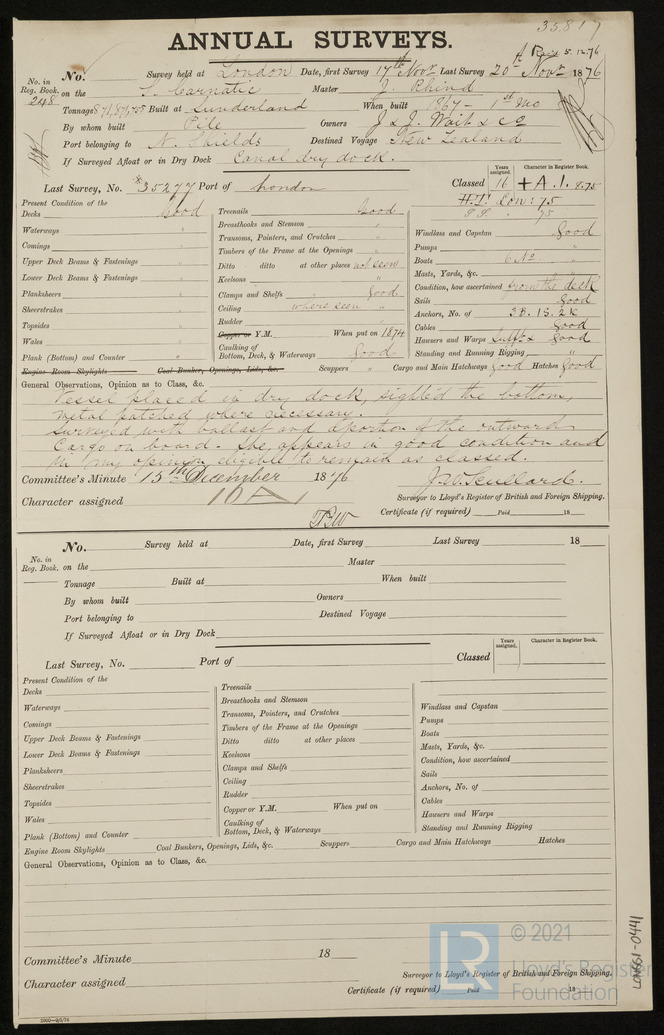 35817
ANNUAL SURVEYS.
5.12.76
No. in Reg. Book. 248
No. Survey held at London Date, first Survey 17th Novr Last Survey 20th Novr 1876
on the S. Carnatic Master J. Rhind
Tonnage 871,876,755 Built at Sunderland When built 1867 - 1st Mo
By whom built Pile Owners J & J. Wait & Co
Port belonging to N. Shields Destined Voyage New Zealand
If Surveyed Afloat or in Dry Dock Canal dry dock.
Last Survey, No. *35277 Port of London
Classed Years assigned. 16 Character in Register Book. +A.1. 8.75
H.T. Lon: 75
75
Present Condition of the
Decks Good
Waterways "
Comings "
Upper Deck Beams & Fastenings "
Lower Deck Beams & Fastenings "
Planksheers "
Sheerstrakes "
Topsides "
Wales "
Plank (Bottom) and Counter "
Treenails Good
Breasthooks and Stemson "
Transoms, Pointers, and Crutches "
Timbers of the Frame at the Openings "
Ditto ditto at other places not seen
Keelsons "
Clamps and Shelfs Good
Ceiling where seen "
Rudder "
Copper or Y.M. When put on 1874
Caulking of Bottom, Deck, & Waterways Good
Windlass and Capstan Good
Pumps "
Boats 6 No "
Masts, Yards, &c. "
Condition, how ascertained from the deck
Sails Good
Anchors, No. of 3B. 1S. 2K
Cables Good
Hawsers and Warps Good
Standing and Running Rigging "
Engine Room Skylights Coal Bunker, Openings, Lids, &c. Scuppers " Cargo and Main Hatchways Good Hatches Good
General Observations, Opinion as to Class, &c.
Vessel placed in dry dock, sighted the bottom,
metal patched where necessary.
Surveyed with ballast and a portion of the outward
Cargo on board - She appears in good condition and
in my opinion eligible to remain as classed.
Committee's Minute 15th December 1876
J.W. Scullard.
Surveyor to Lloyd's Register of British and Foreign Shipping.
Character assigned 16A
Certificate (if required) Paid 18
No. in Reg. Book.
No. Survey held at Date, first Survey Last Survey 18
on the Master
Tonnage Built at When built
By whom built Owners
Port belonging to Destined Voyage
If Surveyed Afloat or in Dry Dock
Last Survey, No. Port of
Classed Years assigned. Character in Register Book.
Present Condition of the
Decks
Waterways
Comings
Upper Deck Beams & Fastenings
Lower Deck Beams & Fastenings
Planksheers
Sheerstrakes
Topsides
Wales
Plank (Bottom) and Counter
Treenails
Breasthooks and Stemson
Transoms, Pointers, and Crutches
Timbers of the Frame at the Openings
Ditto ditto at other places
Keelsons
Clamps and Shelfs
Ceiling
Rudder
Copper or Y.M. When put on
Caulking of Bottom, Deck, & Waterways
Windlass and Capstan
Pumps
Boats
Masts, Yards, &c.
Condition, how ascertained
Sails
Anchors, No. of
Cables
Hawsers and Warps
Standing and Running Rigging
Engine Room Skylights Coal Bunkers, Openings, Lids, &c. Scuppers Cargo and Main Hatchways Hatches
General Observations, Opinion as to Class, &c.
Committee's Minute 18
Surveyor to Lloyd's Register of British and Foreign Shipping.
Character assigned
Certificate (if required) Paid 18
LR © 2021
Lloyd's Register
Foundation